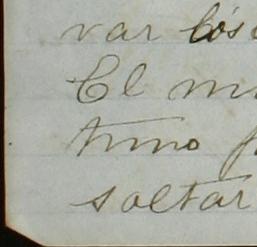 var los
El m
tuvo p
soltar